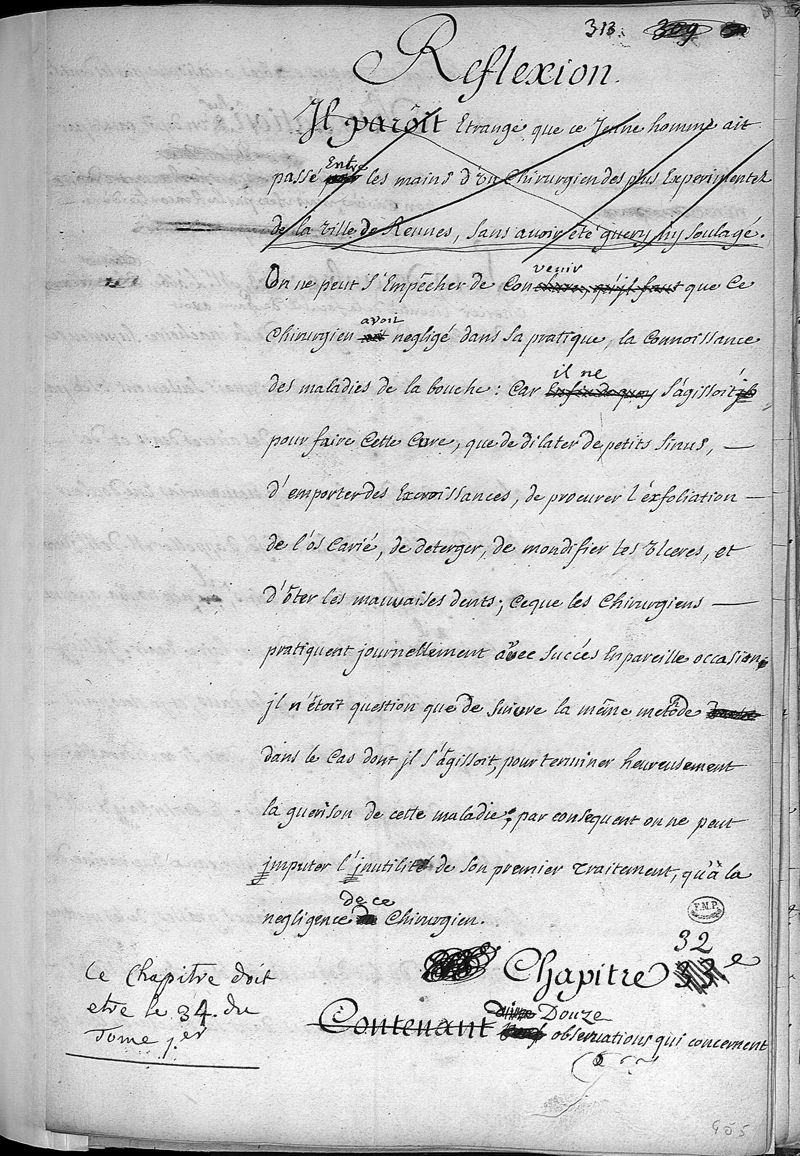 313. 309
Reflexion.
Il parôit Etrange que ce Jeune homme ait
Entre
passé les mains d'un Chirurgien des plus Experimentez
de la ville de Rennes, sans avoir été guery ny soulagé.
venir
On ne peut s'Empêcher de Con qu'il faut que Ce
avoit
Chirurgien ait negligé dans sa pratique, la Connoissance
il ne
des maladies de la bouche: Car Enfin de quoy s'agissoit jl
pour faire Cette Cure, que de dilater de petits sinus,
d'emporter des Excroissances, de procurer l'éxfoliation
de l'ôs Carié, de deterger, de mondifier les Ulceres, et
d'ôter les mauvaises dents; ce que les Chirurgiens
pratiquent journellement avec succés En pareille occasion;
jl n'étoit question que de suivre la même metôde
dans le Cas dont jl s'âgissoit, pour terminer heureusement
la guerison de cette maladie; par consequent on ne peut
jmputer l'jnutilité de son premier Traitement, qu'à la
de ce
negligence du Chirurgien.
F.M.P.
32
Chapitre 33e
Ce Chapitre doit
etre le 34. du
Tome 1.er
Douze
Contenant observations qui concernent
455